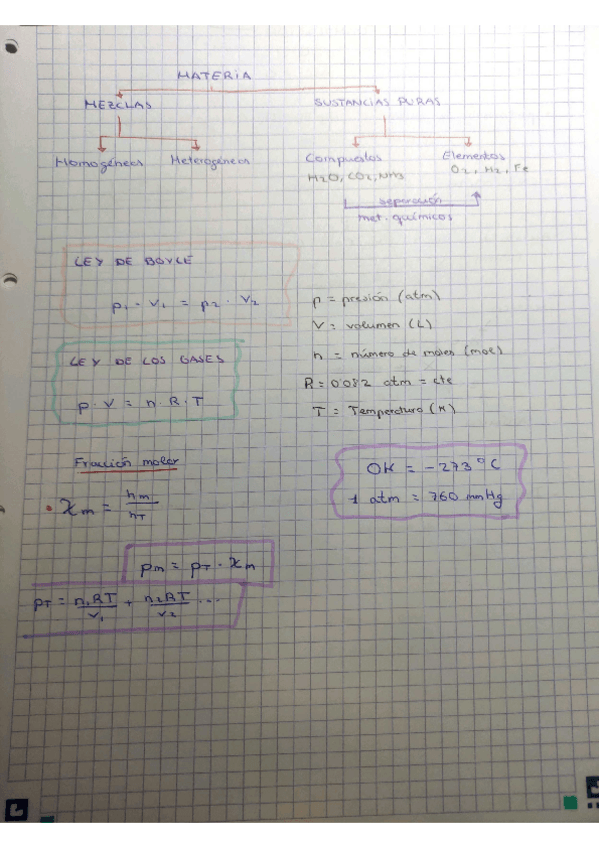 MATERIA
MEZCLAS SUSTANCIAS PURAS
Homogéneas Heterogéneas Compuestos Elementos
H2O, CO2, NH3 O2, H2, Fe
separación
met. químicos
LEY DE BOYLE
p1 · V1 = p2 · V2
p = presión (atm)
V = volumen (L)
n = número de moles (mol)
R = 0'082 atm = cte
T = Temperatura (K)
LEY DE LOS GASES
p · V = n · R · T
Fracción molar
χm = nm / nT
0K = -273 °C
1 atm = 760 mmHg
pm = pT · χm
pT = n1RT / V1 + n2RT / V2 ...